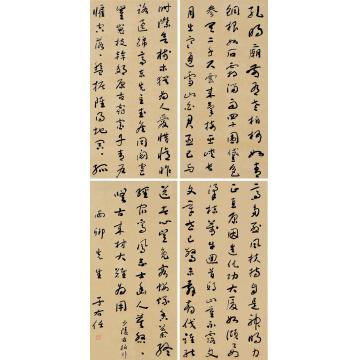 孔明廟前有老柏柯如青
銅根如石霜皮溜雨四十圍黛色
參天二千尺雲來氣接巫峽長
月出寒通雪山白君臣已與
時際會樹木猶為人愛惜憶昨
路繞錦亭東先主武侯同閟宮崔
嵬枝幹郊原古窈窕丹青戶
牖空落落盤踞雖得地冥冥孤
高多烈風扶持自是神明力
正直原因造化功大廈如傾要
梁棟萬牛回首丘山重不露文
章世已驚未辭剪伐誰能
送苦心豈免容螻蟻香葉終
經宿鸞鳳志士幽人莫怨
嗟古來材大難為用
少陵古柏行
西卿先生 于右任